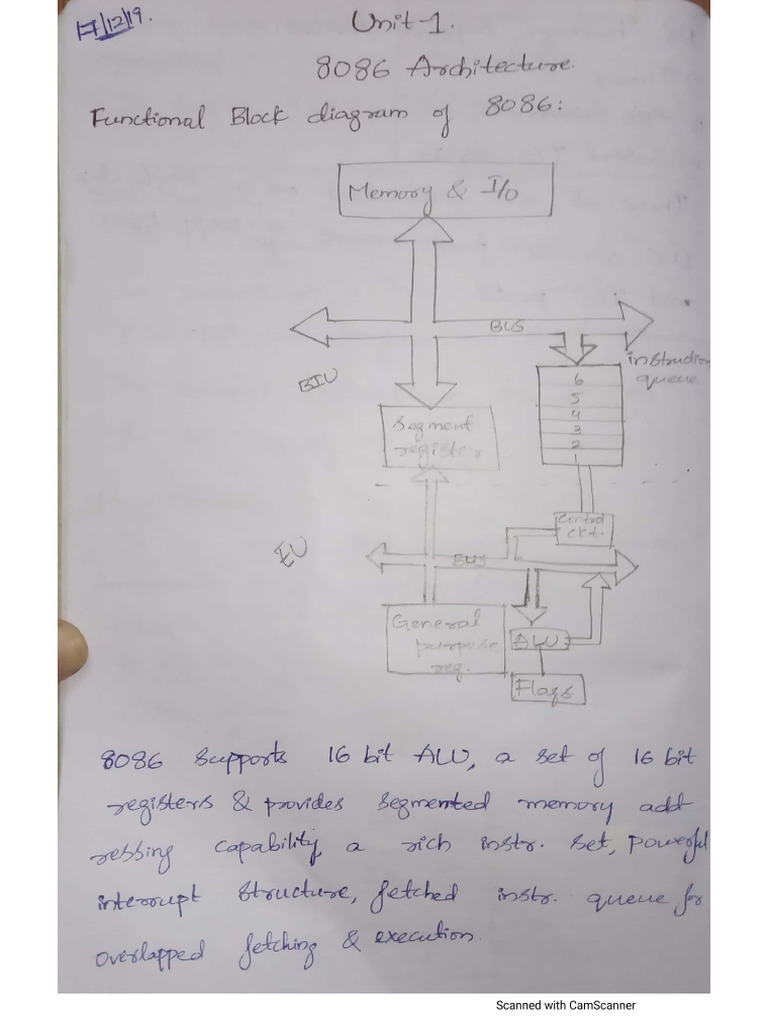 17/12/19.
Unit-1.
8086 Architecture.
Functional Block diagram of 8086:
Memory & I/O
BUS
instruction
queue
BIU
6
5
4
3
2
1
Segment
register
Control
ckt.
EU
BUS
General
purpose
reg.
ALU
Flags
8086 supports 16 bit ALU, a set of 16 bit
registers & provides segmented memory add
ressing capability, a rich instr. set, powerful
interrupt structure, fetched instr. queue for
overlapped fetching & execution.
Scanned with CamScanner